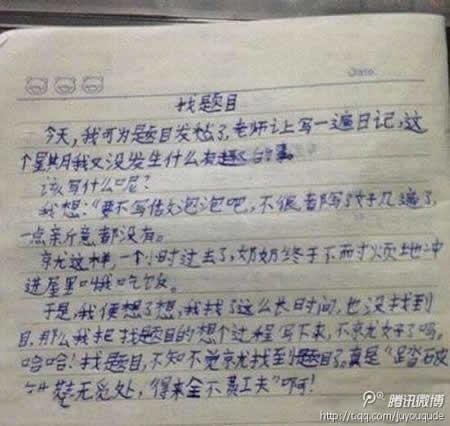 Date.
找题目
今天,我可为题目发愁了,老师让写一遍日记,这
个星期我又没发生什么有趣的事。
该写什么呢?
我想:"要不写信吹泡泡吧,不很都写好几遍了,
一点新意都没有。
就这样,一个小时过去了,奶奶终于不耐烦地冲
进屋里叫我吃饭。
于是,我便想了想,我找了这么长时间,也没找到
目,那么我把找题目的想个过程写下来,不就好了吗。
哈哈!找题目,不知不觉就找到题目了。真是"踏破
鞋无觅处,"得来全不费工夫"啊!
腾讯微博
http://t.qq.com/juyouqude